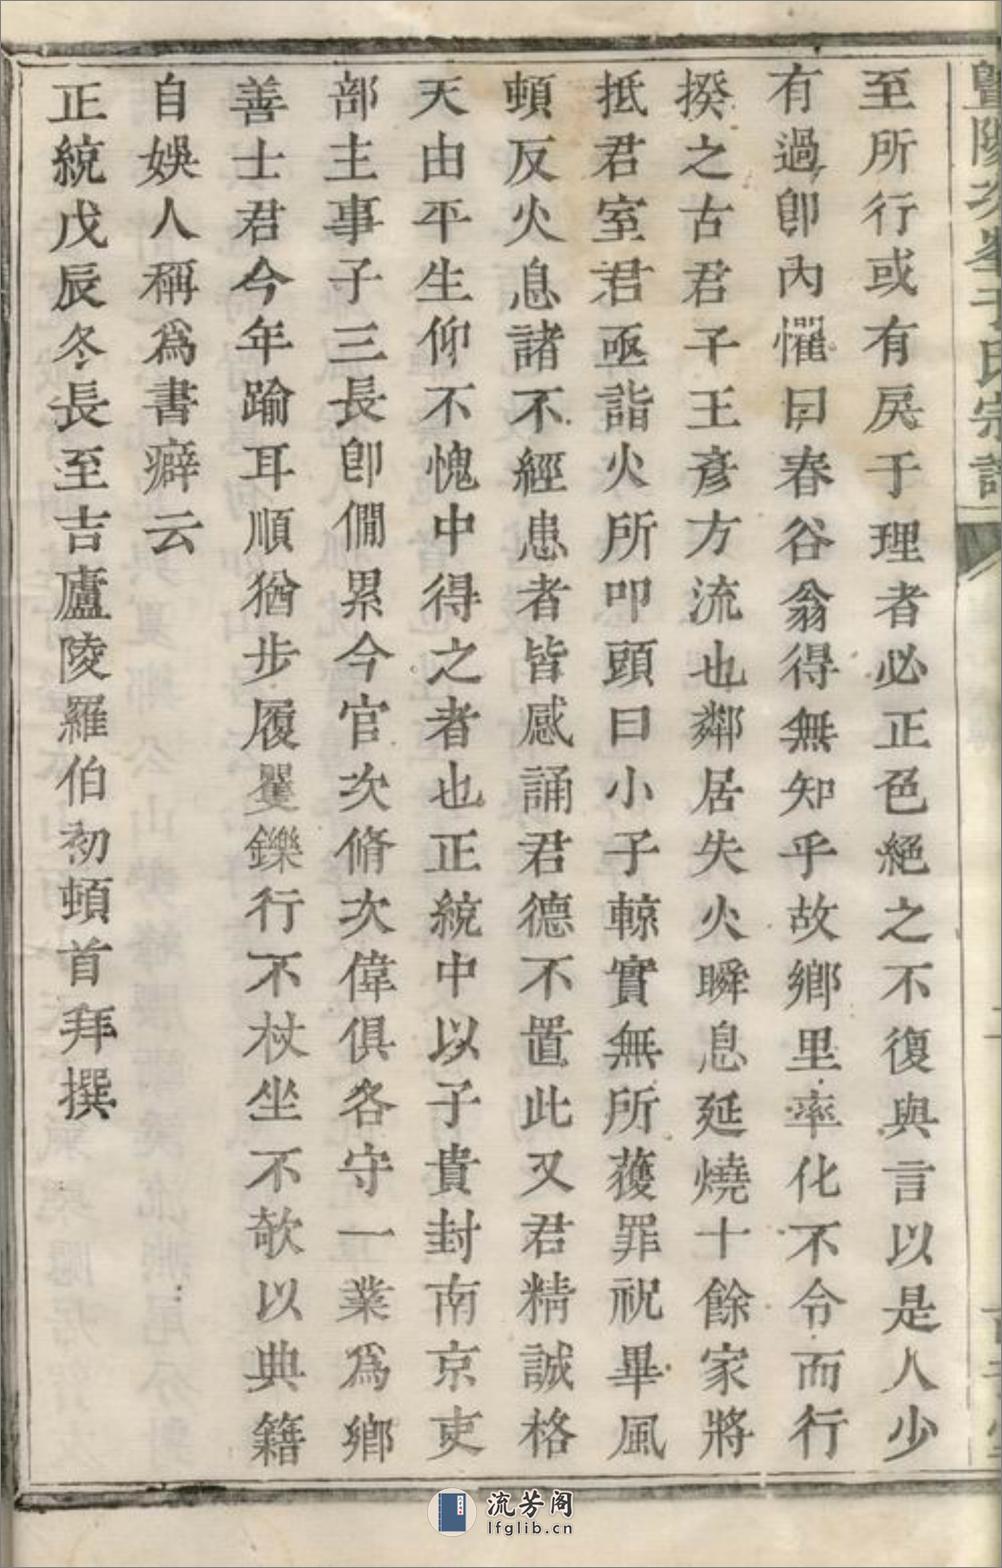 至所行或有戾于理者必正色絕之不復與言以是人少
有過卽內懼曰春谷翁得無知乎故鄉里率化不令而行
揆之古君子王彥方流也鄰居失火瞬息延燒十餘家將
抵君室君亟詣火所叩頭曰小子輬實無所蒦罪祝畢風
頓反火息諸不經患者皆感誦君德不置此又君精誠格
天由平生仰不愧中得之者也正統中以子貴封南京吏
部主事子三長卽僩累今官次脩次偉俱各守一業爲鄉
善士君今年踰耳順猶步履矍鑠行不杖坐不欹以典籍
自娛人稱爲書癖云
正統戊辰冬長至吉廬陵羅伯初頓首拜撰
流芳阁
lfglib.cn